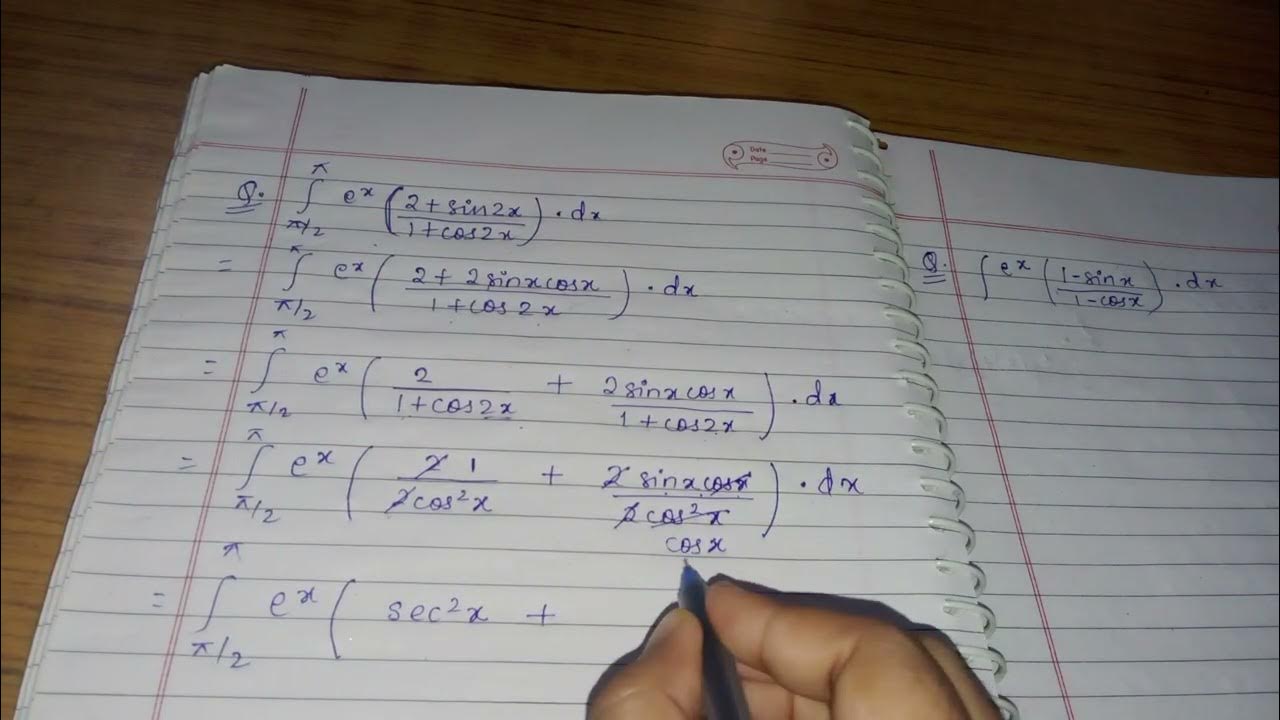 Date
Page
Q. ∫_{π/2}^{π} e^x ( (2 + sin2x) / (1 + cos2x) ) · dx
= ∫_{π/2}^{π} e^x ( (2 + 2 sinx cosx) / (1 + cos2x) ) · dx
= ∫_{π/2}^{π} e^x ( 2 / (1 + cos2x) + 2 sinx cosx / (1 + cos2x) ) · dx
= ∫_{π/2}^{π} e^x ( 2 1 / 2cos²x + 2 sinx cosx / 2 cos²x ) · dx
cosx
= ∫_{π/2}^{π} e^x ( sec²x +
Q. ∫ e^x ( (1 - sinx) / (1 - cosx) ) · dx